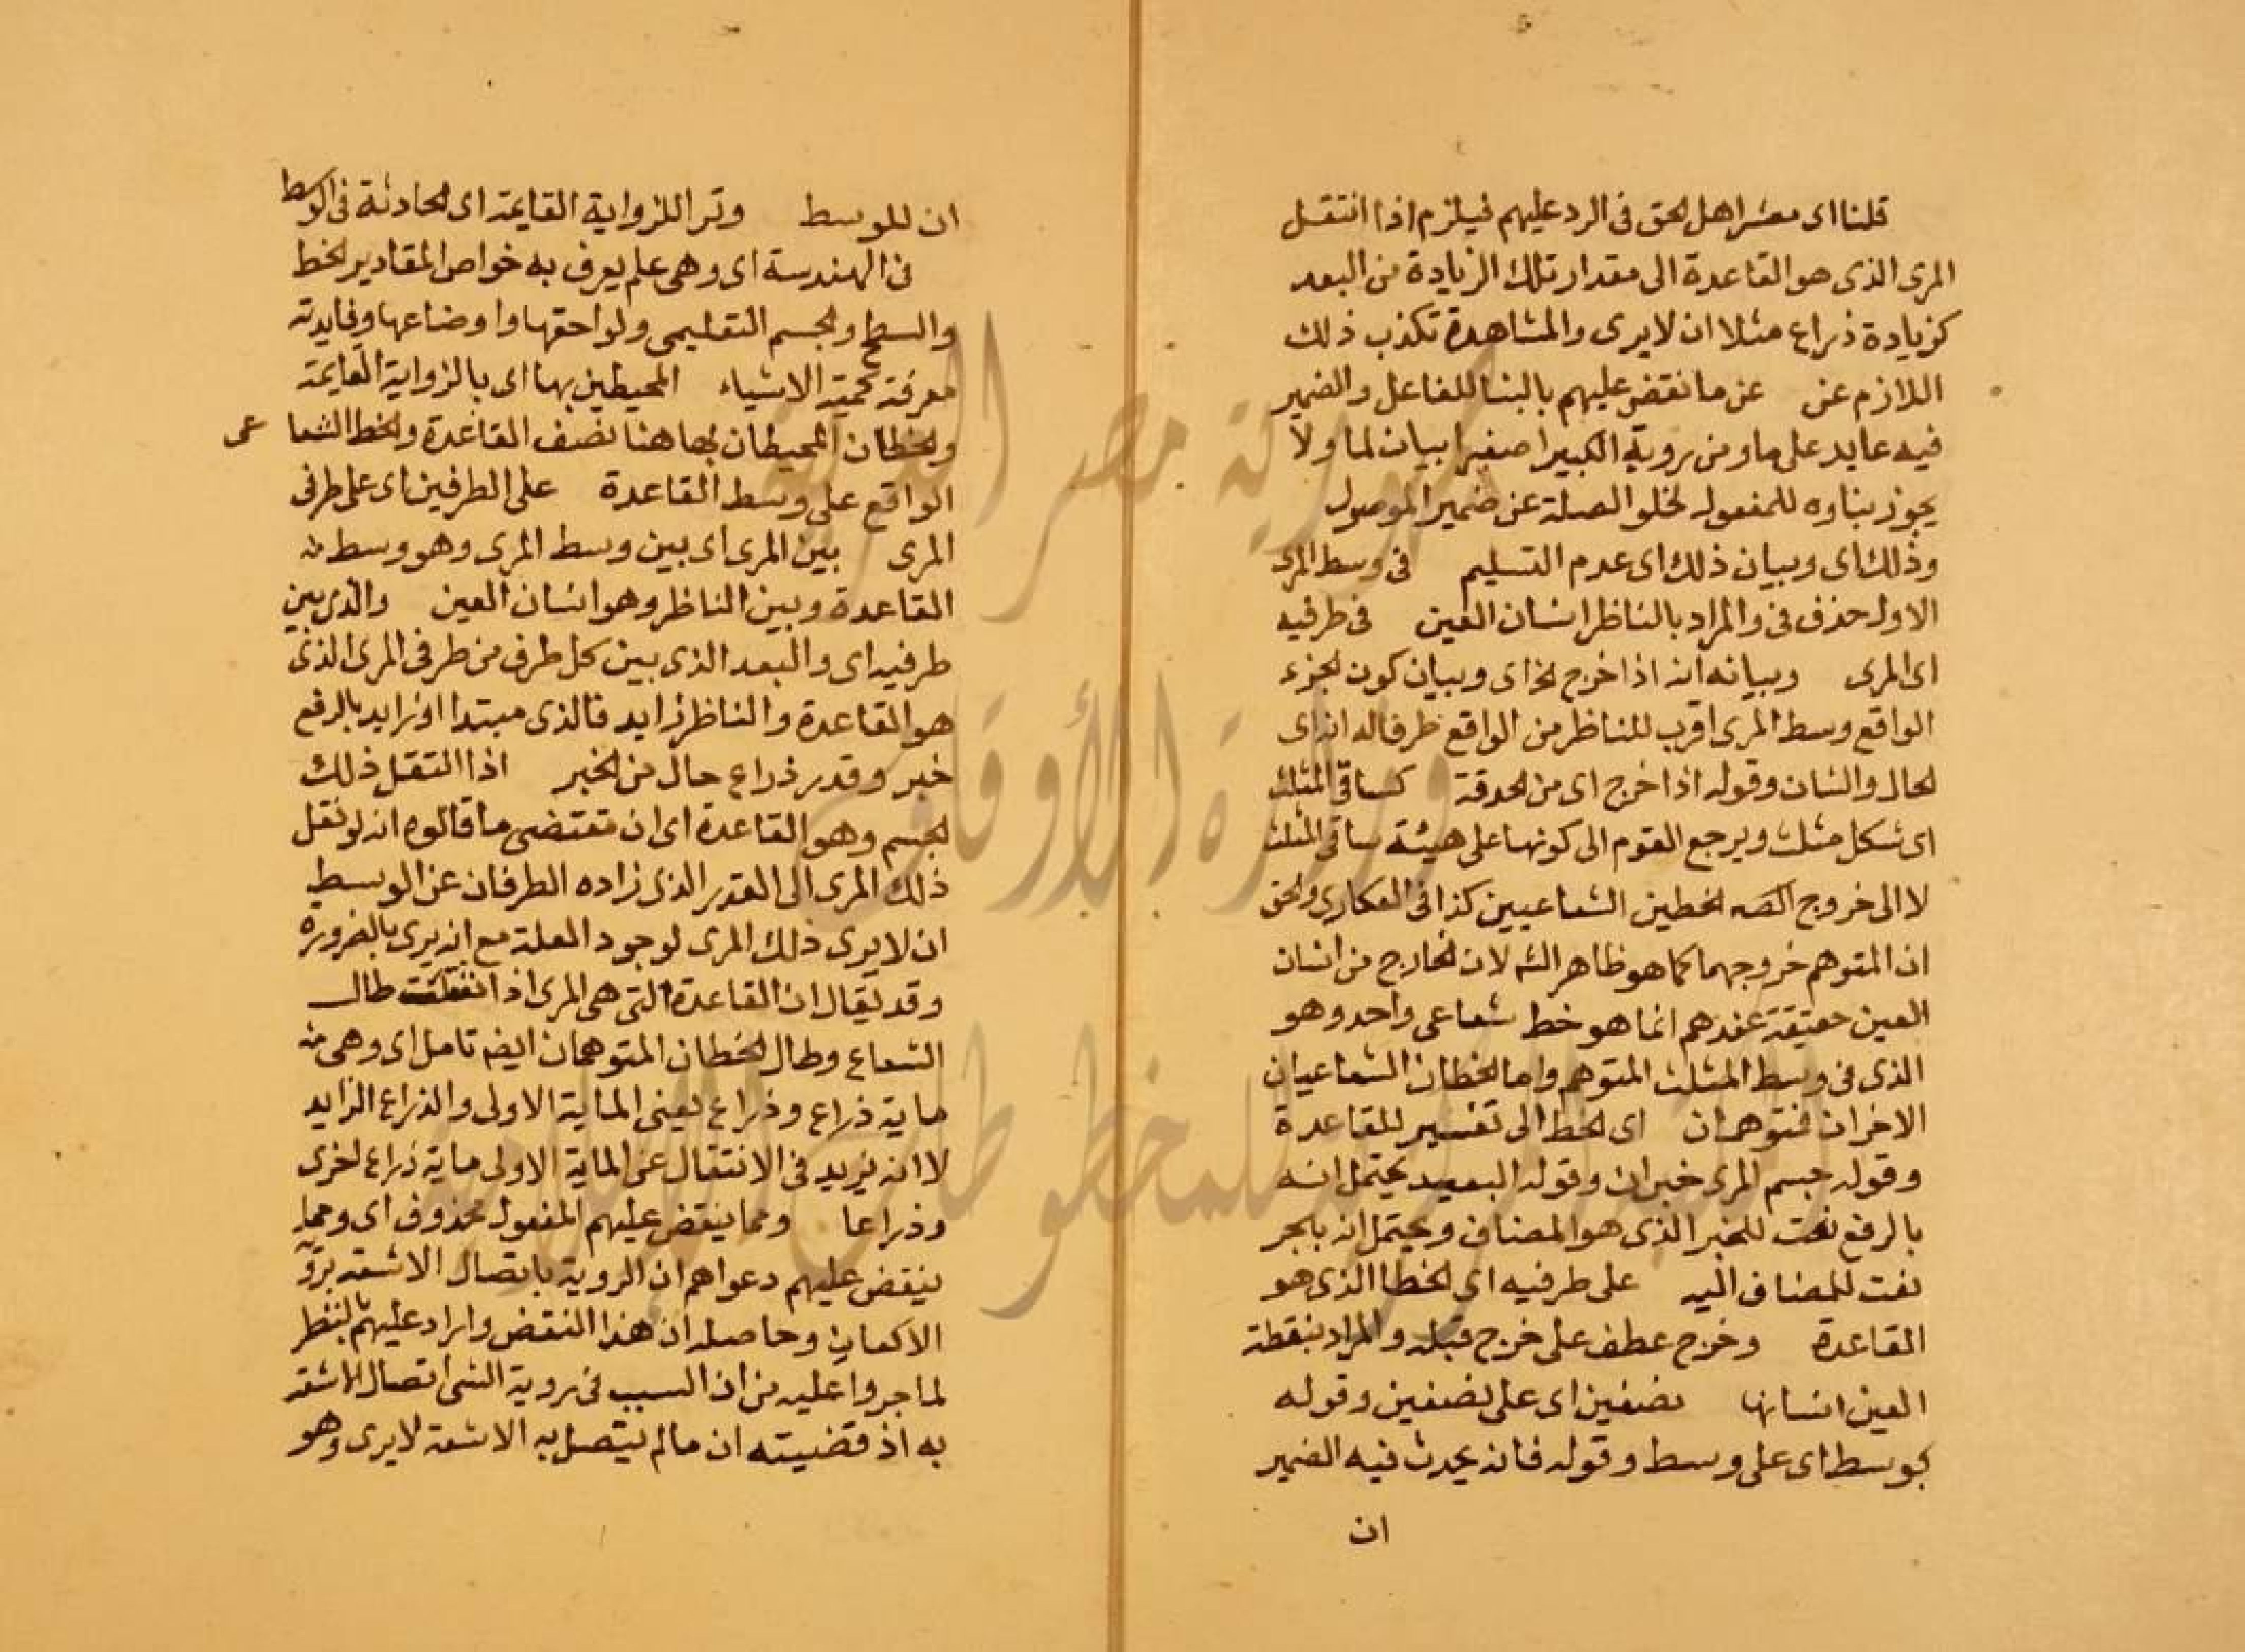 قلنا اى معشر اهل لحق فى الرد عليهم فيلزم اذا انتقل
المرى الذى هو القاعدة الى مقدار تلك الزيادة من البعد
كزيادة ذراع مثلا ان لا يرى والمشاهدة تكذب ذلك
اللازم عن عن ما نقض عليهم بالبنا للفاعل والضمير
فيه عايد على ما ومن روية الكبير اصغيرا بيان لما ولا
يجوز بناوه للمفعول لخلو الصلة عن ضمير الموصول
وذلك اى وبيان ذلك اى عدم التسليم فى وسط المرى
الاول حذف فى والمراد بالناظر انسان العين فى طرفيه
اى المرى وبيانه انه اذا خرج لخ اى وبيان كون لجزء
الواقع وسط المرى اقرب للناظر من الواقع طرفا له انه اى
لحال والشان وقوله اذا خرج اى من لحدقة كساقى المثلث
اى شكل مثلث ويرجع القوم الى كونها على هيئة ساقى المثلث
لا الى خروج لخطين الشعاعيين كذا فى العكارى ولحق
ان المتوهم خروجهما كما هو ظاهر الش لان لخارج من انسان
العين حقيقة عندهم انما هو خط شعاعى واحد وهو
الذى فى وسط المثلث المتوهم واما لخطان الشعاعيان
الاخران فمتوهمان اى لخط الى تفسير للقاعدة
وقوله جسم المرى خبر ان وقوله البعيد يحتمل انه
بالرفع نعت للخبر الذى هو المضاف ويحتمل انه بالجر
نعت للمضاف اليه على طرفيه اى لخط الذى هو
القاعدة وخرج عطف على خرج قبله والمراد بنقطة
العين انسانها نصفين اى على نصفين وقوله
بوسط اى على وسط وقوله فانه يحدث فيه الضمير
ان
ان للوسط وترا للزواية القايمة اى لحادثة فى الوسط
فى الهندسة اى وهى علم يعرف به خواص المقادير لخط
والسطح ولجسم التعليمى ولواحقها واوضاعها وفايدته
معرفة كمية الاشياء المحيطين بها اى بالزواية القايمة
ولخطان المحيطان بها هنا نصف القاعدة ولخط الشعاعى
الواقع على وسط القاعدة على الطرفين اى على طرفى
المرى بين المرى اى بين وسط المرى وهو وسط منه
القاعدة وبين الناظر وهو انسان العين والذى بين
طرفيه اى والبعد الذى بين كل طرف من طرفى المرى الذى
هو القاعدة والناظر زايد فالذى مبتدا او زايد بالرفع
خبر وقدر ذراع حال من لخبر اذا انتقل ذلك
لجسم وهو القاعدة اى ان مقتضى ما قالوه انه لو نقل
ذلك المرى الى القدر الذى زاده الطرفان عن الوسط
ان لا يرى ذلك المرى لوجود العلة مع انه يرى بالضرورة
وقد يقال ان القاعدة التى هى المرى اذا انتقلت طال
الشعاع وطال لخطان المتوهمان ايضا تامل اى وهى منه
ماية ذراع وذراع يعنى الماية الاولى والذراع الزايد
لا انه يزيد فى الانتقال عن الماية الاولى ماية ذراع اخرى
وذراعا ومما ينقض عليهم المفعول محذوف اى ومما
ينقض عليهم دعواهم ان الروية باتصال الاشعة
الاكعاب وحاصله ان هذا النقض وايراد عليهم بالنظر
لما جروا عليه من ان السبب فى روية الشى اتصال الاشعة
به اذ قضيته ان مالم يتصل به الاشعة لا يرى وهو